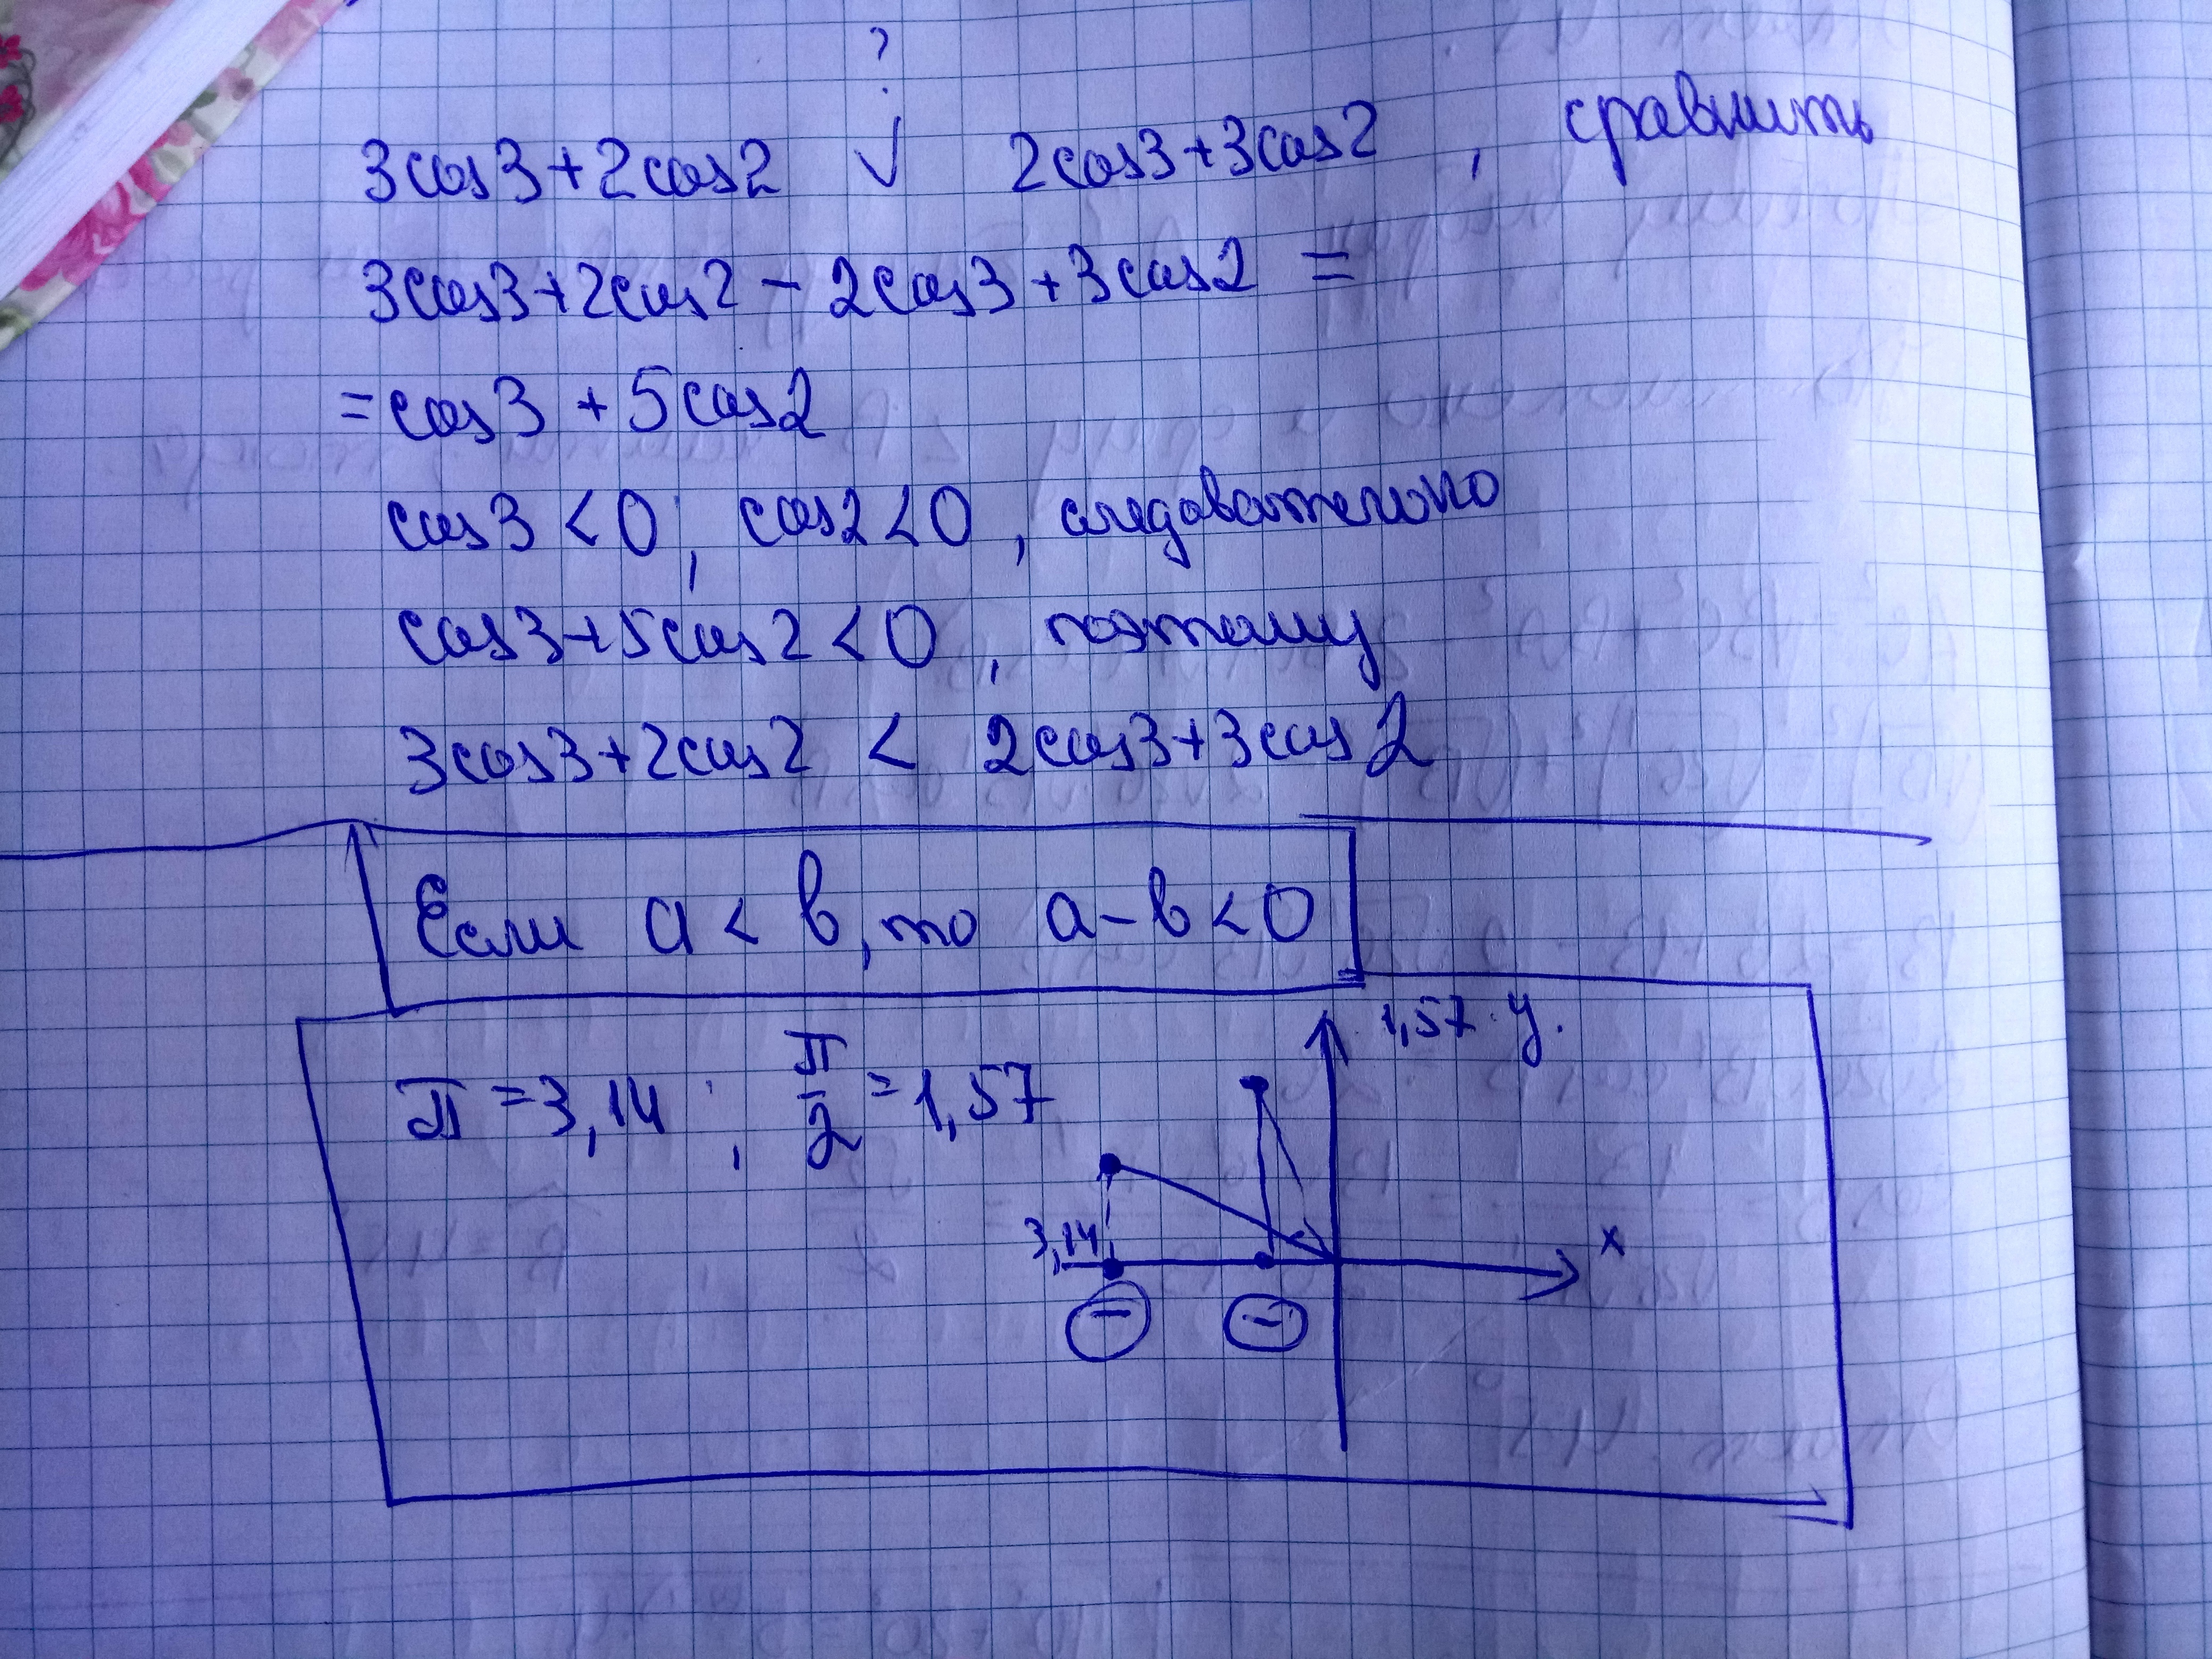 ?
3cos3+2cos2 ∨ 2cos3+3cos2, сравнить
3cos3+2cos2-2cos3+3cos2=
=cos3+5cos2
cos3<0; cos2<0, следовательно
cos3+5cos2<0, поэтому
3cos3+2cos2 < 2cos3+3cos2
Если a < b, то a-b<0
π=3,14; π/2=1,57
1,57 y.
3,14
x
− −